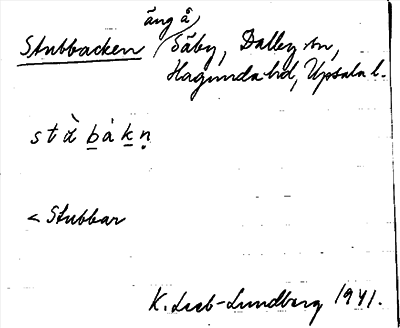 äng å
Stubbacken Säby, Dalby sn,
Hagunda hd, Upsala l.
st&#224; b̲ȧ k̲ṇ
< Stubbar
K. Leeb-Lundberg 1941.